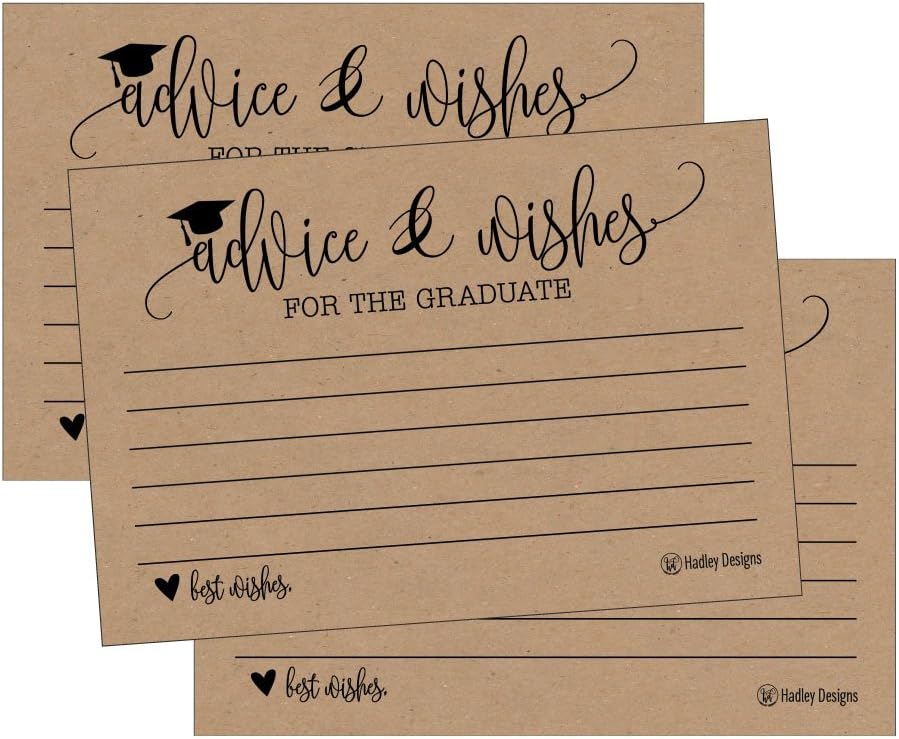 advice & wishes
FOR THE
advice & wishes
FOR THE GRADUATE
best wishes,
Hadley Designs
best wishes,
Hadley Designs